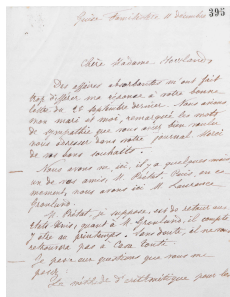 395
Guise Familistère 11 décembre
Chère Madame Howland,
Des affaires absorbantes m'ont fait
trop différer ma réponse à votre bonne
lettre du 26 septembre dernier. Nous avions
mon mari et moi, remarqué les mots
de sympathie que vous aviez bien voulu
nous adresser dans votre journal. Merci
de vos bons souhaits.
Nous avons vu, ici, il y a quelques mois
un de vos amis, M. en ce
moment, nous avons ici M.
M. je suppose, est de retour aux
Etats-Unis; quant à M. il compte
y être au printemps. Sans doute, il ne vous
retrouvera pas à Casa Tonti.
Je passe aux questions que vous me
posez:
La méthode d'arithmétique pour les